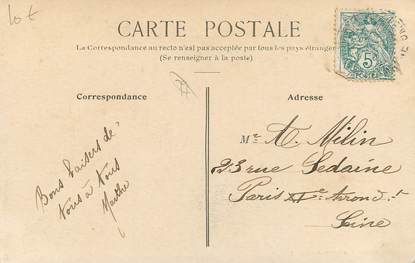 10 €
CARTE POSTALE
La Correspondance au recto n'est pas acceptée par tous les pays étrangers
(Se renseigner à la poste)
Correspondance
Adresse
Bons baisers de
nous à tous
Marthe
M. A. Milin
23 rue Sedaine
Paris XIe Arrondt
Seine
5c